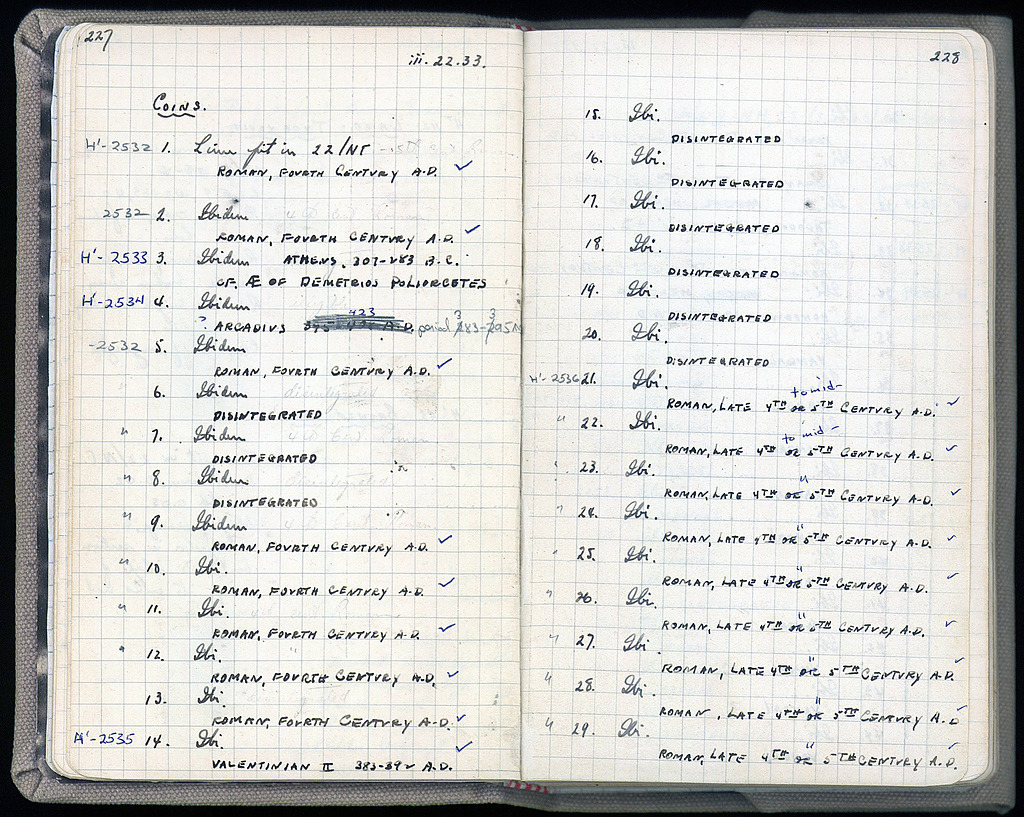 227
iii. 22.33.
COINS.
H'-2532 1. Lime pit in 22/NT
ROMAN, FOURTH CENTURY A.D. ✓
2532 2. Ibidem
ROMAN, FOURTH CENTURY A.D. ✓
H'-2533 3. Ibidem ATHENS, 307-283 B.C.
CF. Æ OF DEMETRIOS POLIORCETES
H'-2534 4. Ibidem
423
? ARCADIUS period 383-395
-2532 5. Ibidem
ROMAN, FOURTH CENTURY A.D. ✓
" 6. Ibidem
DISINTEGRATED
" 7. Ibidem
DISINTEGRATED
" 8. Ibidem
DISINTEGRATED
" 9. Ibidem
ROMAN, FOURTH CENTURY A.D. ✓
" 10. Ibi.
ROMAN, FOURTH CENTURY A.D. ✓
" 11. Ibi.
ROMAN, FOURTH CENTURY A.D. ✓
" 12. Ibi.
ROMAN, FOURTH CENTURY A.D. ✓
13. Ibi.
ROMAN, FOURTH CENTURY A.D. ✓
H'-2535 14. Ibi.
VALENTINIAN II 383-392 A.D. ✓
228
15. Ibi.
DISINTEGRATED
16. Ibi.
DISINTEGRATED
17. Ibi.
DISINTEGRATED
18. Ibi.
DISINTEGRATED
19. Ibi.
DISINTEGRATED
20. Ibi.
DISINTEGRATED
H'-2536 21. Ibi.
to mid-
ROMAN, LATE 4TH OR 5TH CENTURY A.D. ✓
" 22. Ibi.
to mid-
ROMAN, LATE 4TH OR 5TH CENTURY A.D. ✓
" 23. Ibi.
"
ROMAN, LATE 4TH OR 5TH CENTURY A.D. ✓
" 24. Ibi.
"
ROMAN, LATE 4TH OR 5TH CENTURY A.D. ✓
" 25. Ibi.
"
ROMAN, LATE 4TH OR 5TH CENTURY A.D. ✓
" 26. Ibi.
"
ROMAN, LATE 4TH OR 5TH CENTURY A.D. ✓
" 27. Ibi.
"
ROMAN, LATE 4TH OR 5TH CENTURY A.D. ✓
" 28. Ibi.
"
ROMAN, LATE 4TH OR 5TH CENTURY A.D. ✓
" 29. Ibi.
"
ROMAN, LATE 4TH OR 5TH CENTURY A.D. ✓